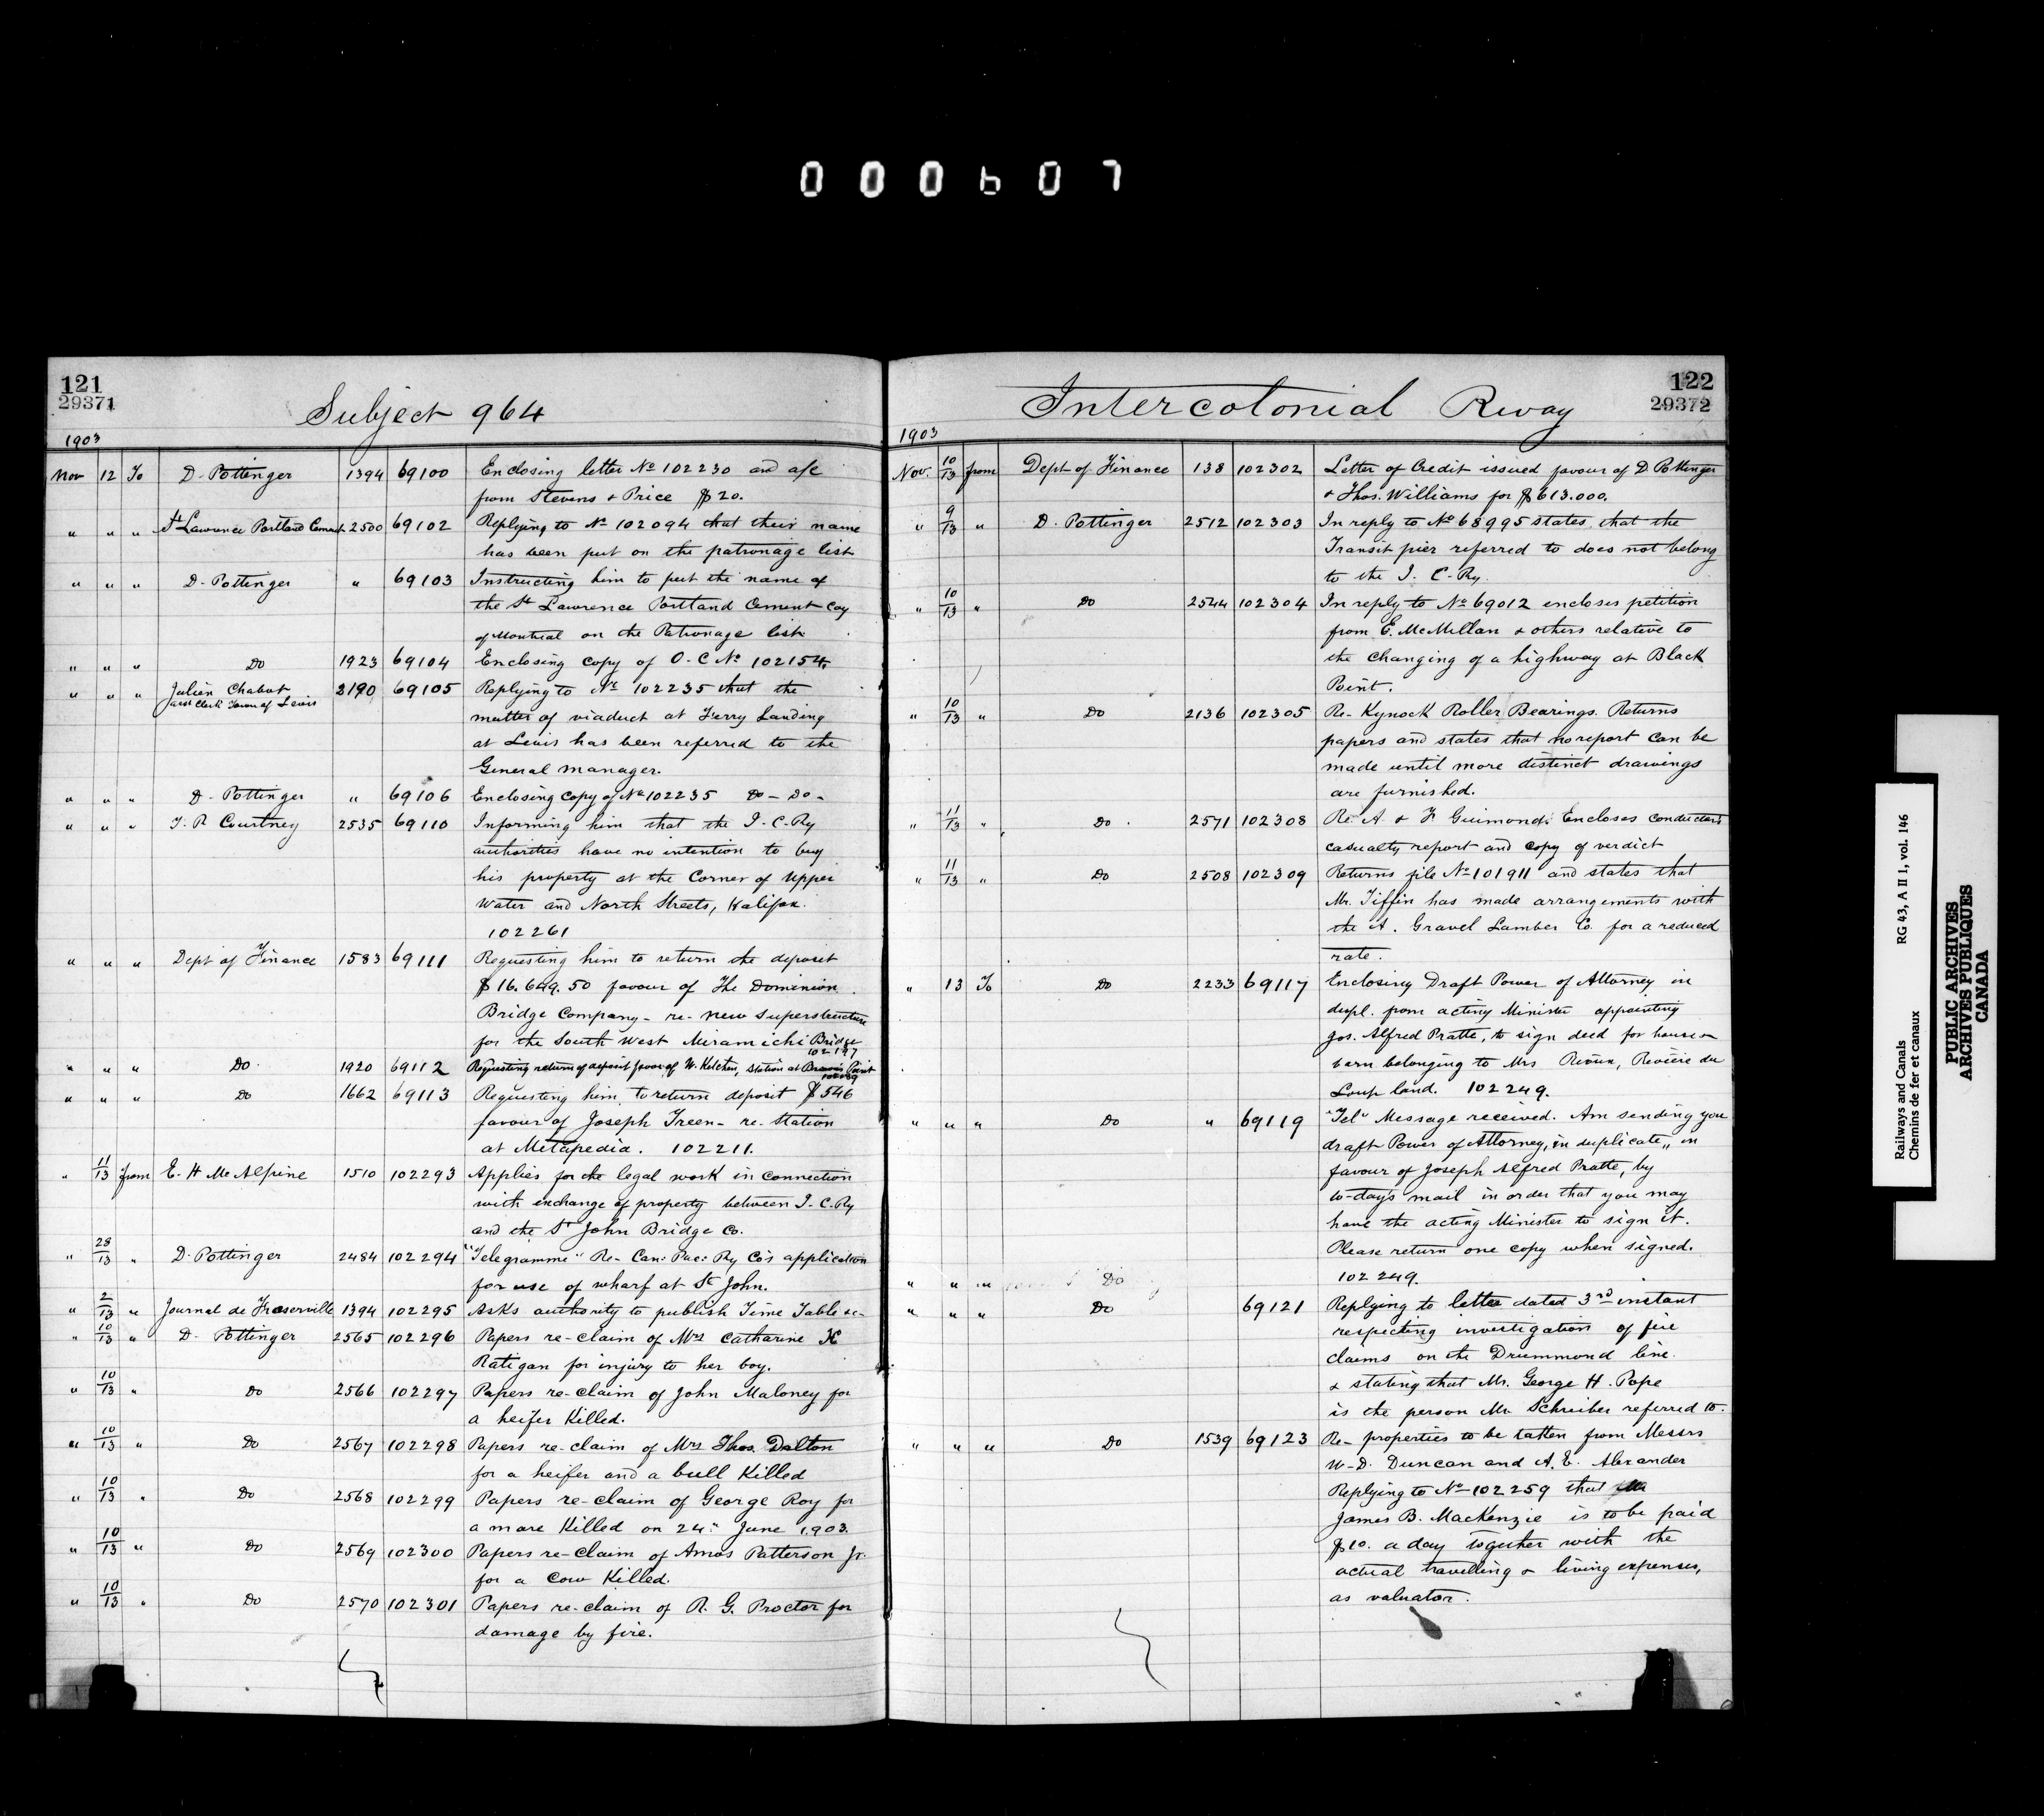 000607
121
29371
Subject 964
1903
Nov 12 To D. Pottinger 1394 69100 Enclosing letter No 102230 and a/c
from Stevens & Price $20.
" " " St Lawrence Portland Cement 2500 69102 Replying to No 102094 that their name
has been put on the patronage list
" " " D. Pottinger " 69103 Instructing him to put the name of
the St Lawrence Portland Cement Coy
of Montreal on the Patronage list
" " " Do 1923 69104 Enclosing copy of O.C No 102154.
" " " Julien Chabot 2190 69105 Replying to No 102235 that the
Clerk Town of Levis
matter of viaduct at Ferry Landing
at Levis has been referred to the
General Manager.
" " " D. Pottinger " 69106 Enclosing copy of No 102235 Do - Do -
" " " T. R Courtney 2535 69110 Informing him that the I. C. Ry
authorities have no intention to buy
his property at the Corner of Upper
Water and North Streets, Halifax.
102261
" " " Dept of Finance 1583 69111 Requesting him to return the deposit
$16.649.50 favour of The Dominion
Bridge Company - re- new superstructure
for the South West Miramichi Bridge
102197
" " " Do 1920 69112 Requesting return of deposit favor of W. Ketchen, Station at Point
" " " Do 1662 69113 Requesting him to return deposit $546
favour of Joseph Treen - re- Station
at Metapedia. 102211.
" 11/13 from E. H McAlpine 1510 102293 Applies for the legal work in connection
with exchange of property between I. C. Ry
and the St John Bridge Co.
" 28/13 " D. Pottinger 2484 102294 "Telegramme" Re- Can: Pac: Ry Co's application
for use of wharf at St John.
" 2/13 " Journal de Fraserville 1394 102295 Asks authority to publish Time Table &c-
" 10/13 " D. Pottinger 2565 102296 Papers re-claim of Mrs Catharine H
Ratigan for injury to her boy.
" 10/13 " Do 2566 102297 Papers re-claim of John Maloney for
a heifer Killed.
" 10/13 " Do 2567 102298 Papers re-claim of Mrs Thos. Dalton
for a heifer and a bull Killed
" 10/13 " Do 2568 102299 Papers re-claim of George Roy for
a mare Killed on 24" June 1903.
" 10/13 " Do 2569 102300 Papers re-claim of Amos Patterson Jr.
for a Cow Killed.
" 10/13 " Do 2570 102301 Papers re-claim of R. G. Proctor for
damage by fire.
122
29372
Intercolonial Rway
1903
Nov. 10/13 from Dept of Finance 138 102302 Letter of Credit issued favour of D. Pottinger
& Thos. Williams for $613.000.
" 9/13 " D. Pottinger 2512 102303 In reply to No 68995 states that the
Transit pier referred to does not belong
to the I. C. Ry.
" 10/13 " Do 2544 102304 In reply to No 69012 encloses petition
from E. McMillan & others relative to
the changing of a highway at Black
Point.
" 10/13 " Do 2136 102305 Re- Kynock Roller Bearings. Returns
papers and states that no report can be
made until more distinct drawings
are furnished.
" 11/13 " Do. 2571 102308 Re. A. & F. Guimond: Encloses Conductor's
casualty report and copy of verdict
" 11/13 " Do 2508 102309 Returns file No 101911 and states that
Mr. Tiffin has made arrangements with
the A. Gravel Lumber Co. for a reduced
rate.
" 13 To Do 2233 69117 Enclosing Draft Power of Attorney in
dupl. from acting Minister appointing
Jos. Alfred Pratte, to sign deed for house &
barn belonging to Mrs Rioux, Rivière du
Loup land. 102249.
" " " Do " 69119 "Tel" Message received. Am sending you
draft Power of Attorney, in duplicate, in
favour of Joseph Alfred Pratte, by
to-day's mail in order that you may
have the acting Minister to sign it.
Please return one copy when signed.
102249.
" " " Do
" " " Do 69121 Replying to letter dated 3rd instant
respecting investigation of fire
claims on the Drummond line.
& stating that Mr. George H. Pope
is the person Mr. Schreiber referred to.
" " " Do 1539 69123 Re- properties to be taken from Messrs
W. D. Duncan and A. E. Alexander
Replying to No 102259 that
James B. MacKenzie is to be paid
$10. a day together with the
actual travelling & living expenses,
as valuator.
Railways and Canals RG 43, A II 1, vol. 146
Chemins de fer et canaux
PUBLIC ARCHIVES
ARCHIVES PUBLIQUES
CANADA